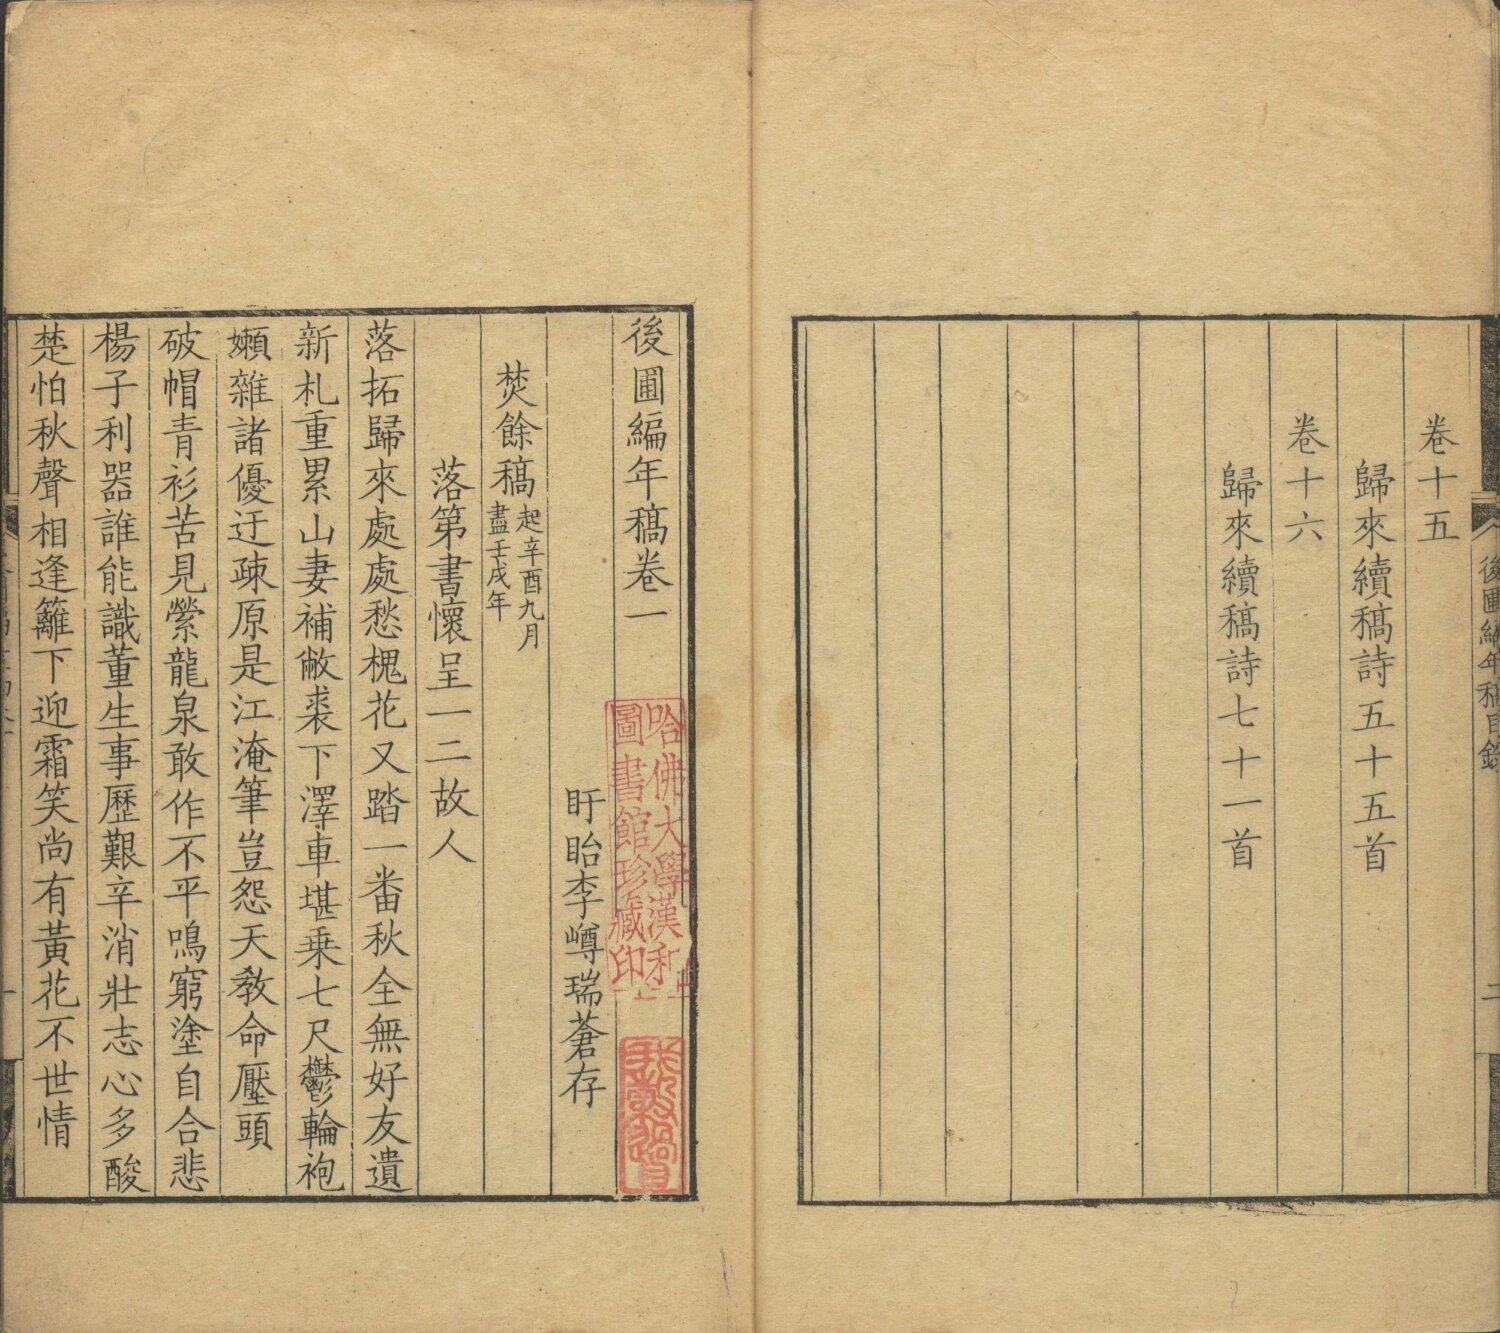 後圃編年稿目錄
二
卷十五
歸來續稿詩五十五首
卷十六
歸來續稿詩七十一首
後圃編年稿卷一
哈佛大學漢和
圖書館珍藏印
盱眙李嶟瑞蒼存
焚餘稿起辛酉九月
盡壬戌年
落第書懷呈一二故人
落拓歸來處處愁槐花又踏一番秋全無好友遺
新札重累山妻補敝裘下澤車堪乗七尺鬱輪袍
嬾雜諸優迂疎原是江淹筆豈怨天敎命壓頭
破帽青衫苦見縈龍泉敢作不平鳴窮塗自合悲
楊子利器誰能識董生事歷艱辛消壯志心多酸
楚怕秋聲相逢籬下迎霜笑尚有黃花不世情
一